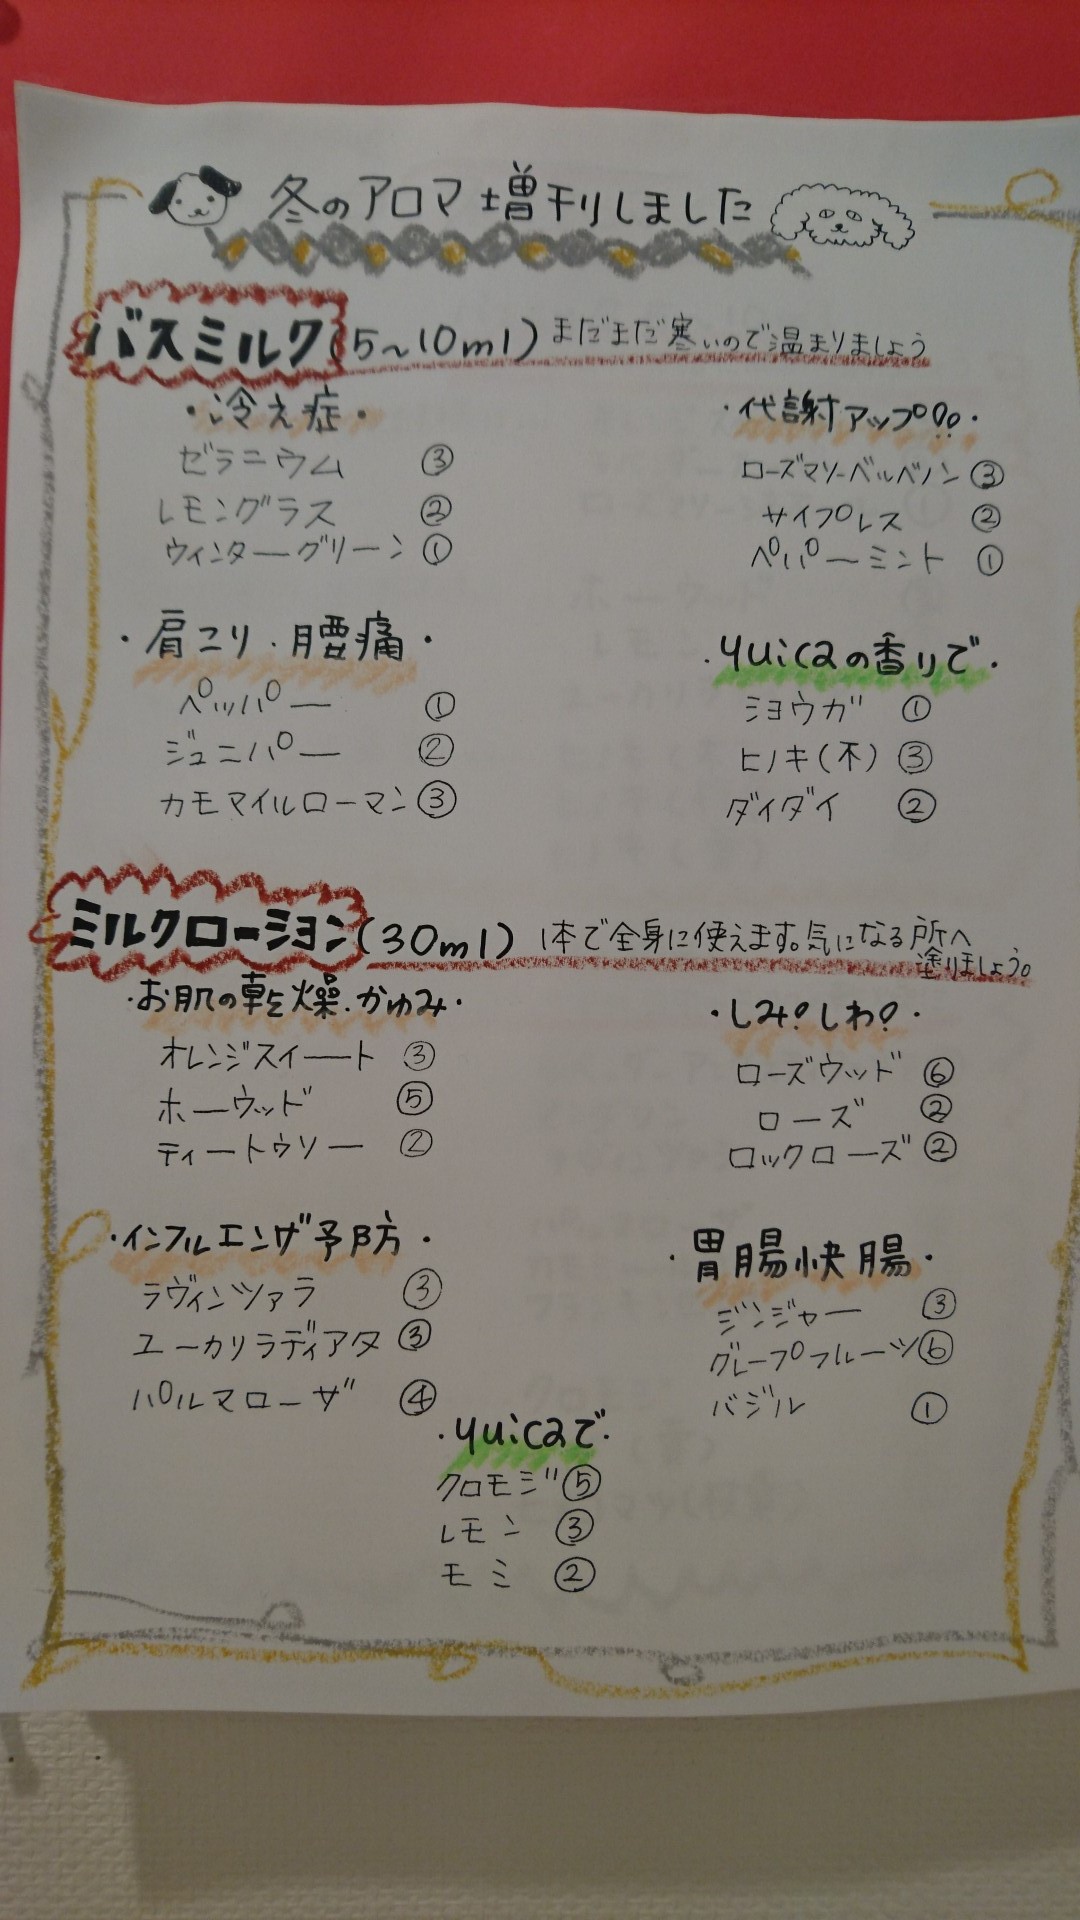 冬のアロマ増刊しました
バスミルク(5～10ml) まだまだ寒いので温まりましょう
・冷え症・
ゼラニウム ③
レモングラス ②
ウィンターグリーン ①
・代謝アップ!!・
ローズマリーベルベノン ③
サイプレス ②
ペパーミント ①
・肩こり・腰痛・
ペッパー ①
ジュニパー ②
カモマイルローマン ③
・yuicaの香りで・
ミョウガ ①
ヒノキ(木) ③
ダイダイ ②
ミルクローション(30ml) 1本で全身に使えます。気になる所へ
塗りましょう。
・お肌の乾燥・かゆみ・
オレンジスイート ③
ホーウッド ⑤
ティートゥリー ②
・しみ!しわ!・
ローズウッド ⑥
ローズ ②
ロックローズ ②
・インフルエンザ予防・
ラヴィンツァラ ③
ユーカリラディアタ ③
パルマローザ ④
・胃腸快腸・
ジンジャー ③
グレープフルーツ ⑥
バジル ①
・yuicaで・
クロモジ ⑤
レモン ③
モミ ②